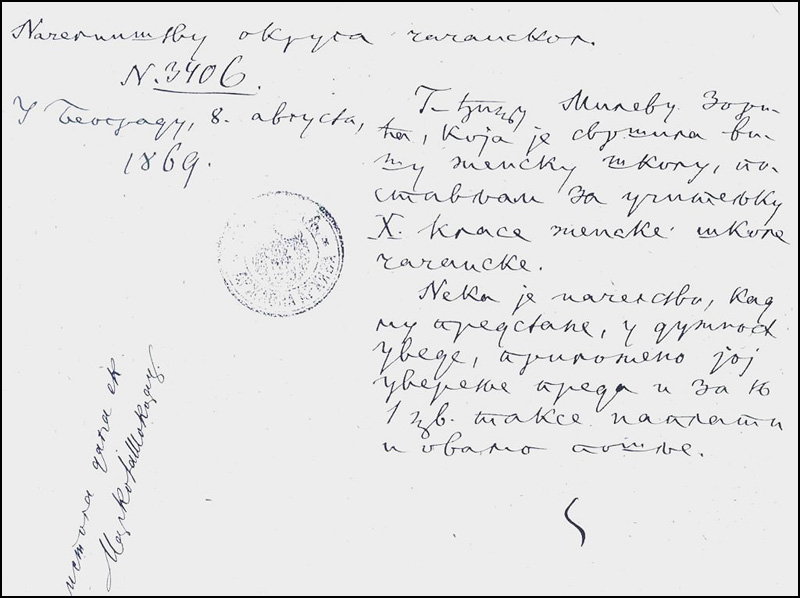 Начелништву округа чачанског.
N. 3406.
У Београду, 8. августа,
1869.
Г-ђицу Милеву Зори-
ћа, која је свршила ви-
шу женску школу, по-
стављам за учитељку
X. класе женске школе
чачанске.
Нека је начелство, кад
му предстане, у дужност
уведе, приложено јој
уверење преда и за њ
1 цв. таксе наплати
и овамо пошље.
истога дана ек.